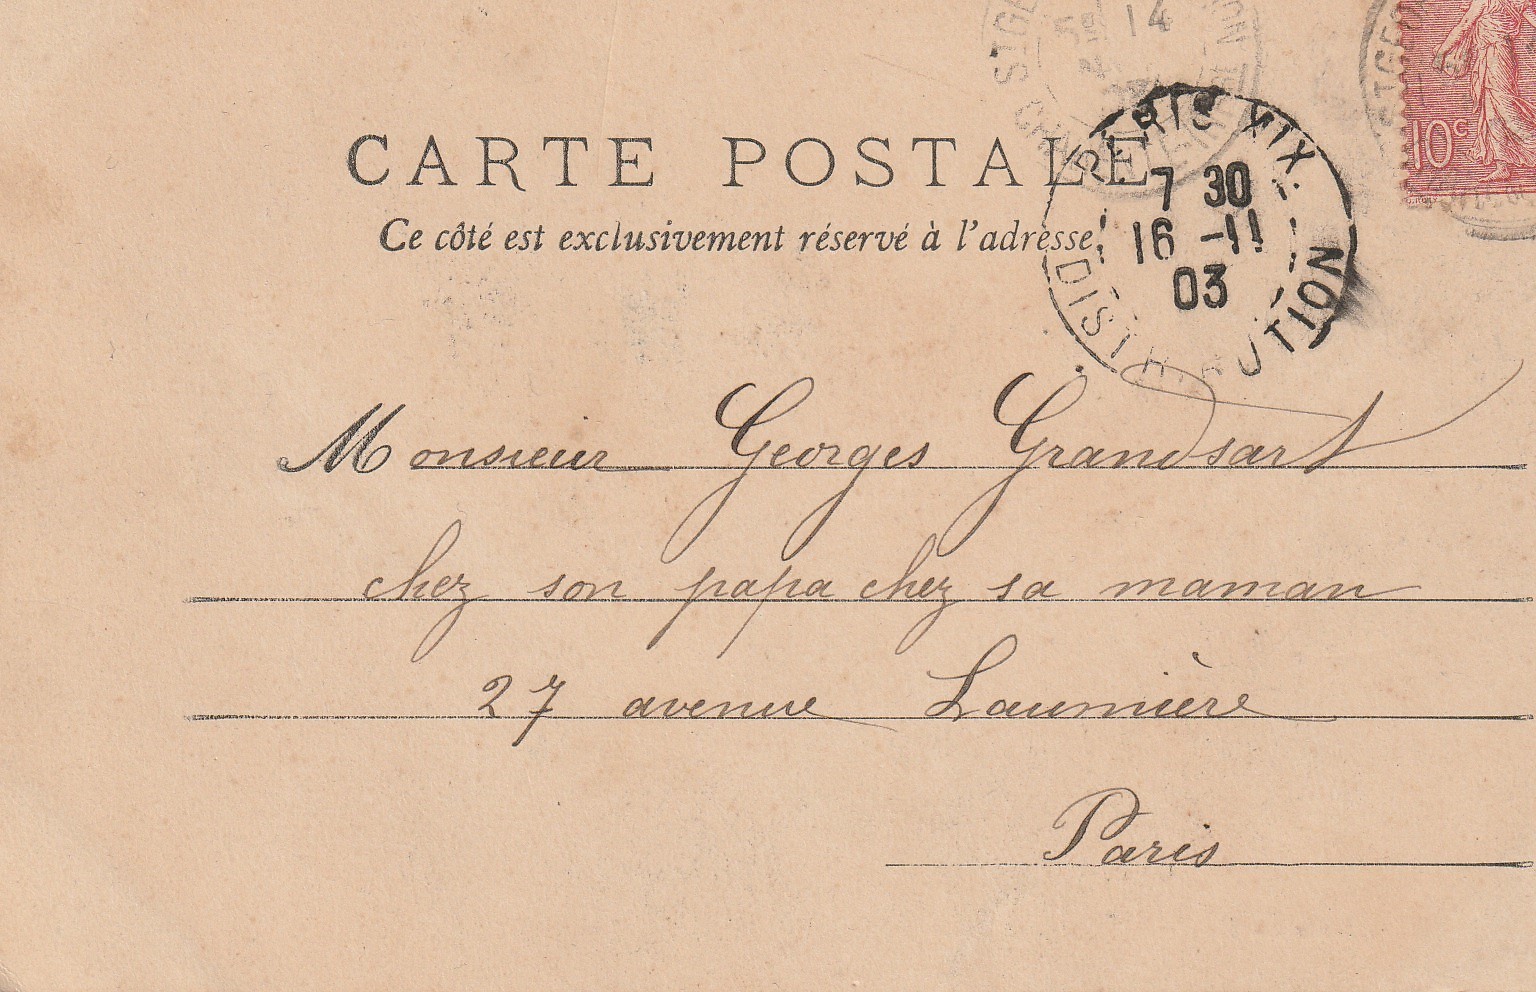 CARTE POSTALE
Ce côté est exclusivement réservé à l'adresse.
PARIS XIX
7 30
16 -11
03
DISTRIBUTION
14
10c
Monsieur Georges Grandsart
chez son papa chez sa maman
27 avenue Laumière
Paris